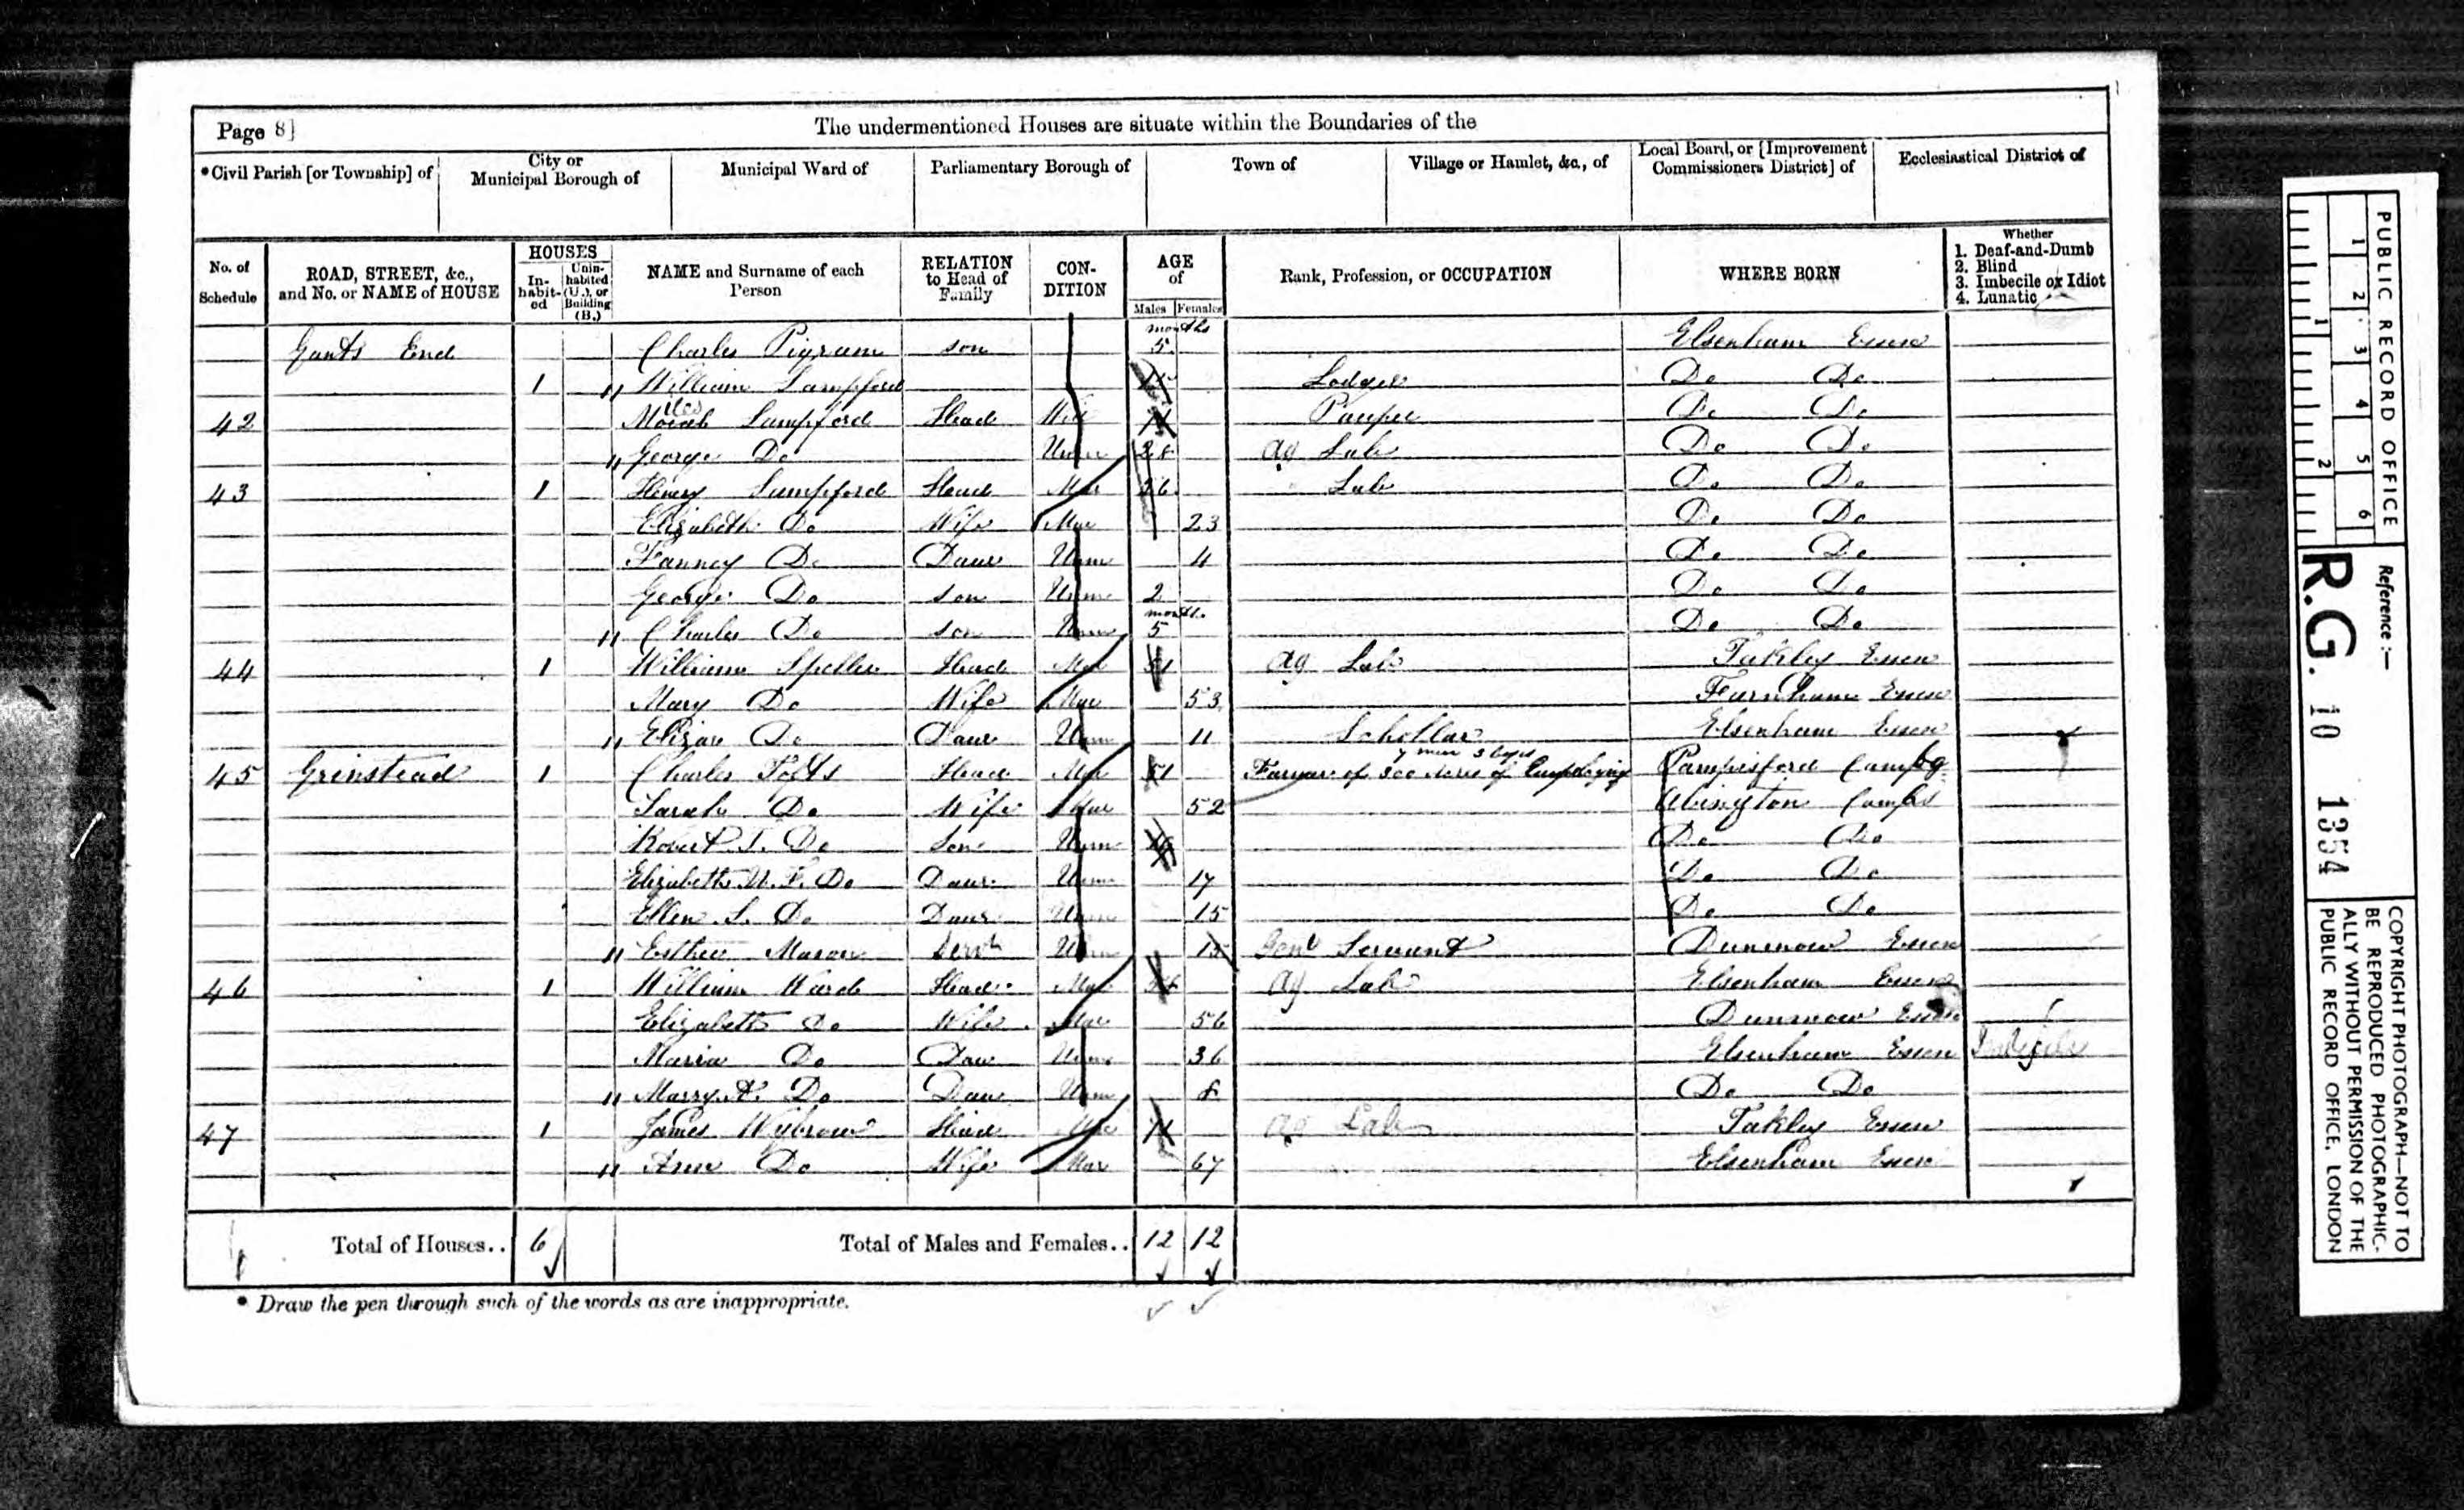 Page 8]
The undermentioned Houses are situate within the Boundaries of the
*Civil Parish [or Township] of
City or Municipal Borough of
Municipal Ward of
Parliamentary Borough of
Town of
Village or Hamlet, &c., of
Local Board, or [Improvement Commissioners District] of
Ecclesiastical District of
No. of Schedule
ROAD, STREET, &c., and No. or NAME of HOUSE
HOUSES
In-habit-ed
Unin-habited (U.), or Building (B.)
NAME and Surname of each Person
RELATION to Head of Family
CON-DITION
AGE of
Males Females
Rank, Profession, or OCCUPATION
WHERE BORN
Whether
1. Deaf-and-Dumb
2. Blind
3. Imbecile or Idiot
4. Lunatic
Gants End Charles Pigram son months 5 Elsenham Essex
1 William Lodger Do Do
42 Head Pauper Do Do
George Do Unm 28 Ag Lab Do Do
43 1 Henry Head Mar 26 Lab Do Do
Elizabeth Do Wife Mar 23 Do Do
Fanney Do Daur Unm 4 Do Do
George Do son Unm 2 Do Do
Charles Do son Unm months 5 Do Do
44 1 William Speller Head Mar Ag Lab Takley Essex
Mary Do Wife Mar 53 Farnham Essex
Elizar Do Daur Unm 11 Schollar Elsenham Essex
45 Grinstead 1 Charles Head Mar 51 Farmer of 300 Acres of Employing 7 men 3 boys Pampisford
Sarah Do Wife Mar 52 Abington Cambs
Robert Do Son Unm Do Do
Elizabeth M. F. Do Daur Unm 17 Do Do
Ellen S. Do Daur Unm 15 Do Do
Esther Mason Servt Unm 15 Genl Servant Dunmow Essex
46 1 William Ward Head Mar Ag Lab Elsenham Essex
Elizabeth Do Wife Mar 56 Dunmow Essex
Maria Do Daur Unm 36 Elsenham Essex Imbecile
Marry A. Do Daur Unm 8 Do Do
47 1 James Wybrow Head Mar 71 Ag Lab Takley Essex
Ann Do Wife Mar 67 Elsenham Essex
Total of Houses.. 6
Total of Males and Females.. 12 12
* Draw the pen through such of the words as are inappropriate.
PUBLIC RECORD OFFICE
1 2 3 4 5 6
1 2
Reference :-
R.G. 10 1354
COPYRIGHT PHOTOGRAPH—NOT TO
BE REPRODUCED PHOTOGRAPHIC-
ALLY WITHOUT PERMISSION OF THE
PUBLIC RECORD OFFICE, LONDON